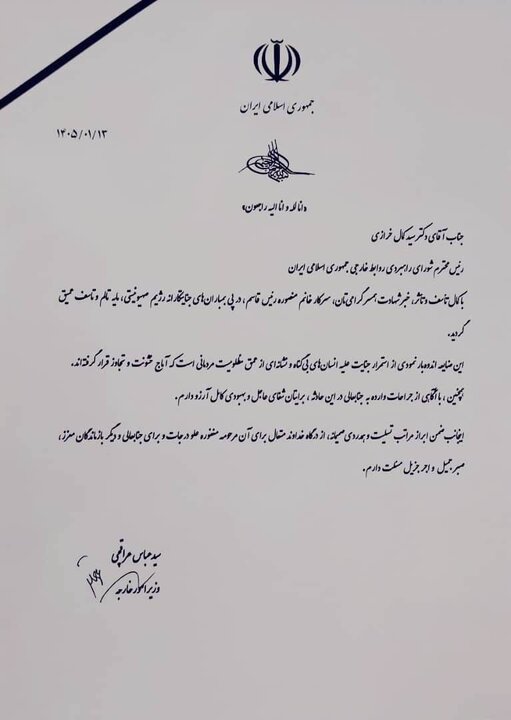 جمهوری اسلامی ایران
۱۴۰۵/۰۱/۱۳
«انا لله و انا الیه راجعون»
جناب آقای دکتر سید کمال خرازی
رئیس محترم شورای راهبردی روابط خارجی جمهوری اسلامی ایران
با کمال تأسف و تأثر، خبر شهادت همسر گرامی‌تان، سرکار خانم منصوره رئیس قاسم، در پی بمباران‌های جنایتکارانه رژیم صهیونیستی، مایه تالم و تاسف عمیق
گردید.
این ضایعه اندوهبار نمودی از استمرار جنایت علیه انسان‌های بی‌گناه و نشانه‌ای از عمق مظلومیت مردمانی است که آماج خشونت و تجاوز قرار گرفته‌اند.
همچنین، با آگاهی از جراحات وارده به جنابعالی در این حادثه، برایتان شفای عاجل و بهبودی کامل آرزو دارم.
اینجانب ضمن ابراز مراتب تسلیت و همدردی صمیمانه، از درگاه خداوند متعال برای آن مرحومه مغفوره علو درجات و برای جنابعالی و دیگر بازماندگان معزز،
صبر جمیل و اجر جزیل مسئلت دارم.
سید عباس عراقچی
وزیر امور خارجه